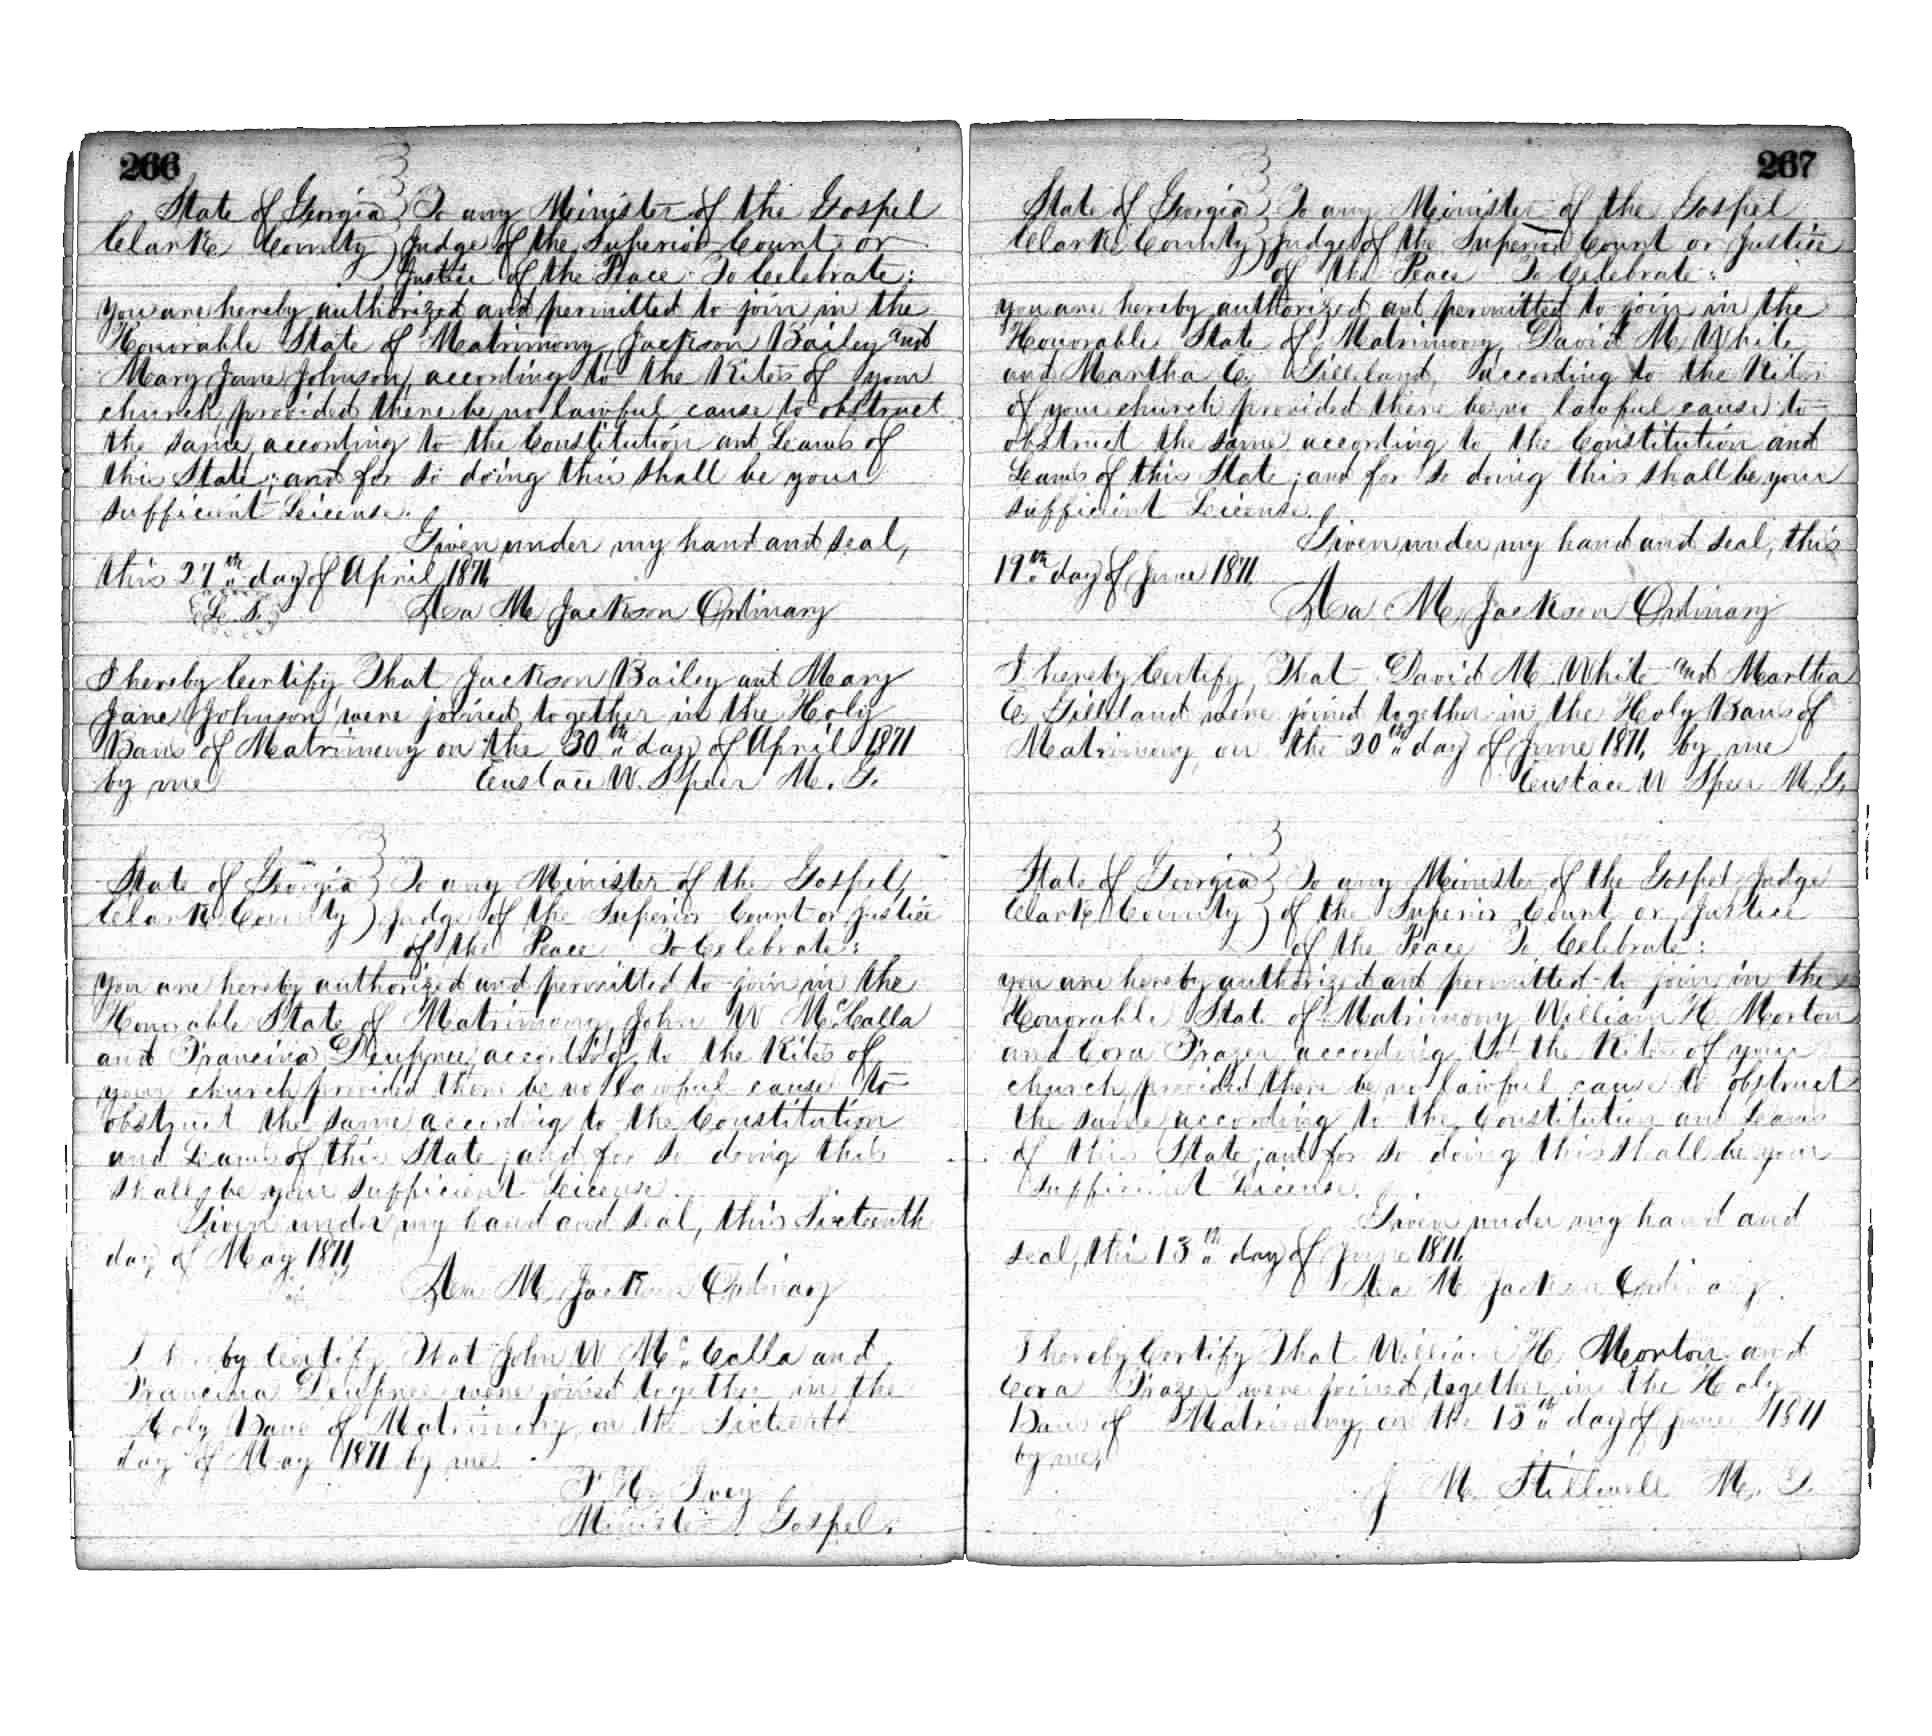 266
State of Georgia } To any Minister of the Gospel
Clarke County } Judge of the Superior Court or
Justice of the Peace To Celebrate:
You are hereby authorized and permitted to join in the
Honorable State of Matrimony, Jackson Bailey and
Mary Jane Johnson, according to the Rites of your
church, provided there be no lawful cause to obstruct
the same, according to the Constitution and Laws of
this State; and for so doing this shall be your
sufficient License.
Given under my hand and seal,
this 27th day of April 1871
L. S. Asa M. Jackson Ordinary
I hereby Certify That Jackson Bailey and Mary
Jane Johnson were joined together in the Holy
Bans of Matrimony on the 30th day of April 1871
by me Eustace W. Speer M. G.
State of Georgia } To any Minister of the Gospel,
Clarke County } Judge of the Superior Court or Justice
of the Peace To Celebrate:
You are hereby authorized and permitted to join in the
Honorable State of Matrimony, John W McCalla
and Francina Deupree, according to the Rites of
your church, provided there be no lawful cause to
obstruct the same according to the Constitution
and Laws of this State; and for so doing this
shall be your sufficient License.
Given under my hand and seal, this Sixteenth
day of May 1871,
Asa M. Jackson Ordinary
I hereby Certify That John W McCalla and
Francina Deupree were joined together in the
Holy Bans of Matrimony on the Sixteenth
day of May 1871 by me.
F. H. Ivey
Minister Gospel.
267
State of Georgia } To any Minister of the Gospel
Clarke County } Judge of the Superior Court or Justice
of the Peace To Celebrate:
you are hereby authorized and permitted to join in the
Honorable State of Matrimony, David M. White
and Martha C. Gilleland, according to the Rites
of your church, provided there be no lawful cause to
obstruct the same, according to the Constitution and
Laws of this State; and for so doing this shall be your
sufficient License.
Given under my hand and seal, this
19th day of June 1871
Asa M. Jackson Ordinary
I hereby Certify, That David M. White and Martha
C. Gilleland were joined together in the Holy Bans of
Matrimony, on the 20th day of June 1871, by me
Eustace W Speer M. G.
State of Georgia } To any Minister of the Gospel Judge
Clarke County } of the Superior Court or Justice
of the Peace To Celebrate:
you are hereby authorized and permitted to join in the
Honorable State of Matrimony William H. Morton
and Cora Frazer, according to the Rites of your
church, provided there be no lawful cause to obstruct
the same, according to the Constitution and Laws
of this State; and for so doing this shall be your
sufficient License.
Given under my hand and
seal, this 13th day of June 1871.
Asa M Jackson Ordinary.
I hereby Certify That William H. Morton and
Cora Frazer were joined together in the Holy
Bans of Matrimony, on the 15th day of June 1871
by me,
J M. Stillwell M. G.